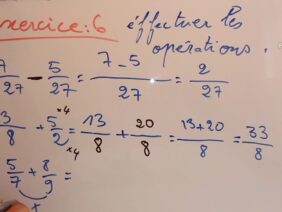 exercice: 6 éffectuer les
opérations.
7/27 - 5/27 = 7-5/27 = 2/27
13/8 + 5/2 ×4 ×4 = 13/8 + 20/8 = 13+20/8 = 33/8
5/7 + 8/9 =
×